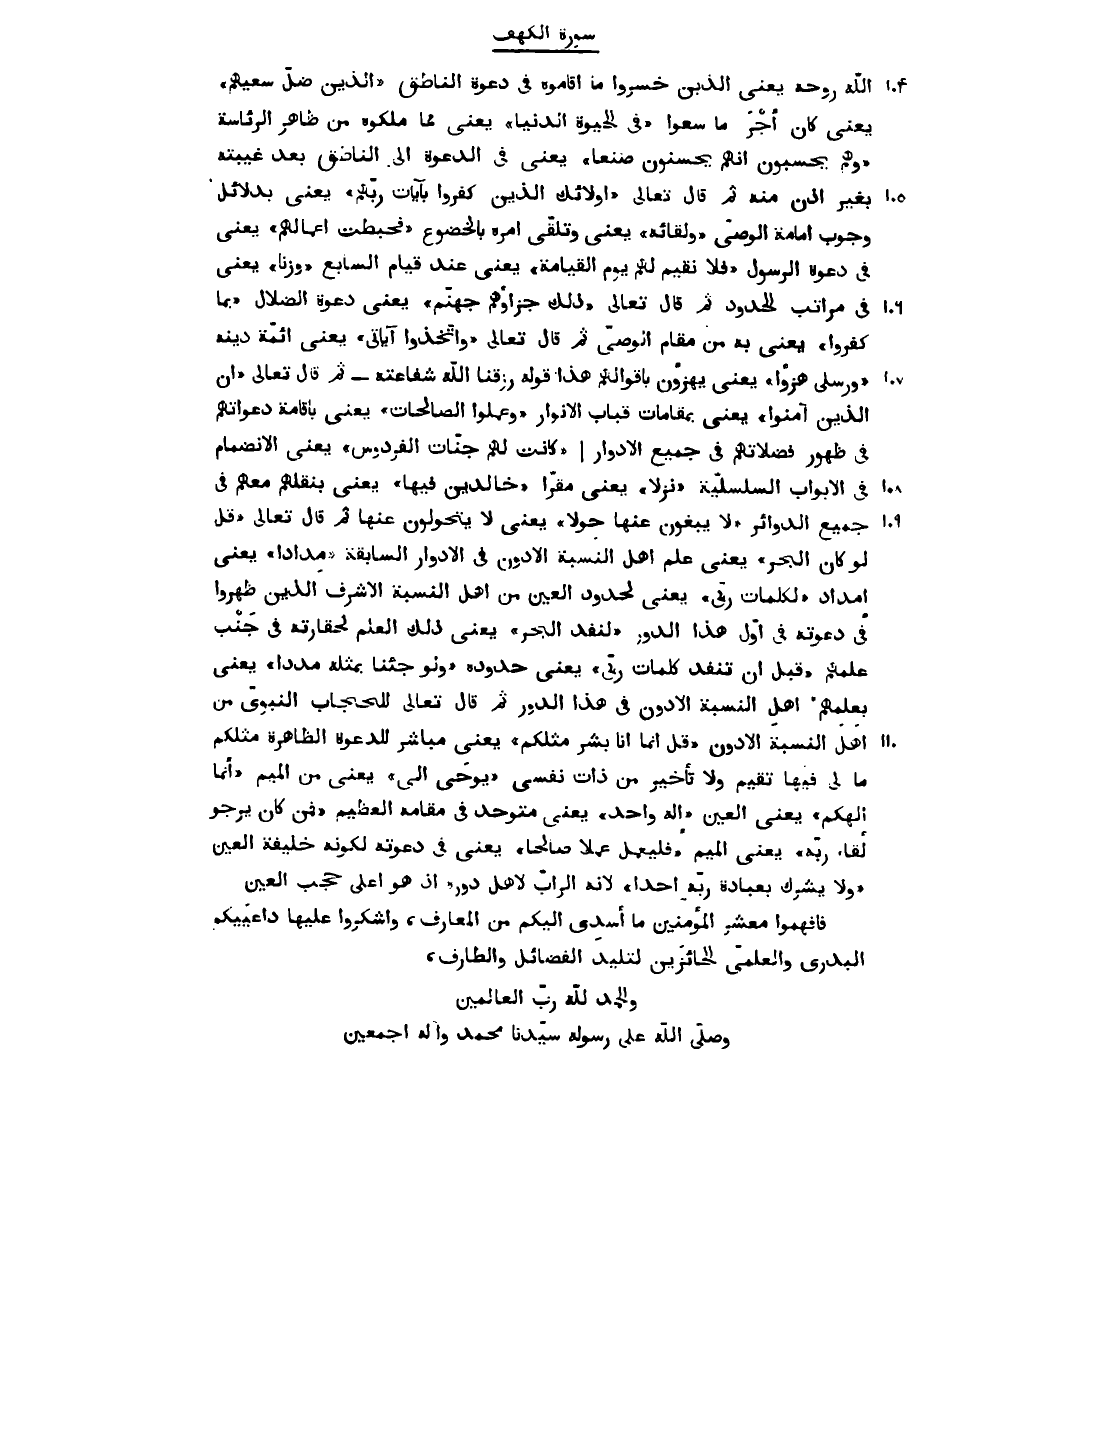 سورة الكهف
١٠۴ اللّه روحه يعنى الذين خسروا ما اقاموه فى دعوة الناطق «الذين ضلّ سعيهم»
يعنى كان أُجْرَ ما سعوا «فى الحيوة الدنيا» يعنى ممّا ملكوه من ظاهر الرئاسة
«وهم يحسبون انهم يحسنون صنعا» يعنى فى الدعوة الى الناطق بعد غيبته
١٠٥ بغير اذن منه ثم قال تعالى «اولائك الذين كفروا بآيات ربّهم» يعنى بدلائل
وجوب امامة الوصىّ «ولقائه» يعنى وتلقّى امره بالخضوع «فحبطت اعمالهم» يعنى
فى دعوة الرسول «فلا نقيم لهم يوم القيامة» يعنى عند قيام السابع «وزنا» يعنى
١٠٦ فى مراتب الحدود ثم قال تعالى «ذلك جزاؤهم جهنّم» يعنى دعوة الضلال «بما
كفروا» يعنى به من مقام الوصىّ ثم قال تعالى «واتّخذوا آياتى» يعنى ائمّة دينه
١٠٧ «ورسلى هزوًا» يعنى يهزؤن باقوالهم هذا قوله رزقنا اللّه شفاعته ــ ثم قال تعالى «ان
الذين آمنوا» يعنى بمقامات قباب الانوار «وعملوا الصالحات» يعنى باقامة دعواتهم
فى ظهور فضلاتهم فى جميع الادوار | «كانت لهم جنّات الفردوس» يعنى الانضمام
١٠٨ فى الابواب السلسليّة «نزلا» يعنى مقرّا «خالدين فيها» يعنى بنقلهم معهم فى
١٠٩ جميع الدوائر «لا يبغون عنها حولا» يعنى لا يتحولون عنها ثم قال تعالى «قل
لو كان البحر» يعنى علم اهل النسبة الادون فى الادوار السابقة «مدادا» يعنى
امداد «لكلمات ربّى» يعنى لحدود العين من اهل النسبة الاشرف الذين ظهروا
فى دعوته فى اوّل هذا الدور «لنفد البحر» يعنى ذلك العلم لحقارته فى جَنْب
علمهم «قبل ان تنفد كلمات ربّى» يعنى حدوده «ولو جئنا بمثله مددا» يعنى
بعلمهم اهل النسبة الادون فى هذا الدور ثم قال تعالى للحجاب النبوىّ من
١١٠ اهل النسبة الادون «قل انما انا بشر مثلكم» يعنى مباشر للدعوة الظاهرة مثلكم
ما لى فيها تقيم ولا تأخير من ذات نفسى «يوحَى الى» يعنى من الميم «أنما
الهكم» يعنى العين «اله واحد» يعنى متوحد فى مقامه العظيم «فمن كان يرجو
لقاء ربّه» يعنى الميم «فليعمل عملا صالحا» يعنى فى دعوته لكونه خليفة العين
«ولا يشرك بعبادة ربّه احدا» لانه الرابّ لاهل دوره اذ هو اعلى حجب العين
فافهموا معشر المؤمنين ما أسدى اليكم من المعارف، واشكروا عليها داعيَيكم
البدرى والعلمىّ الحائزَين لتليد الفضائل والطارف،
والحمد للّه ربّ العالمين
وصلّى اللّه على رسوله سيّدنا محمد وآله اجمعين